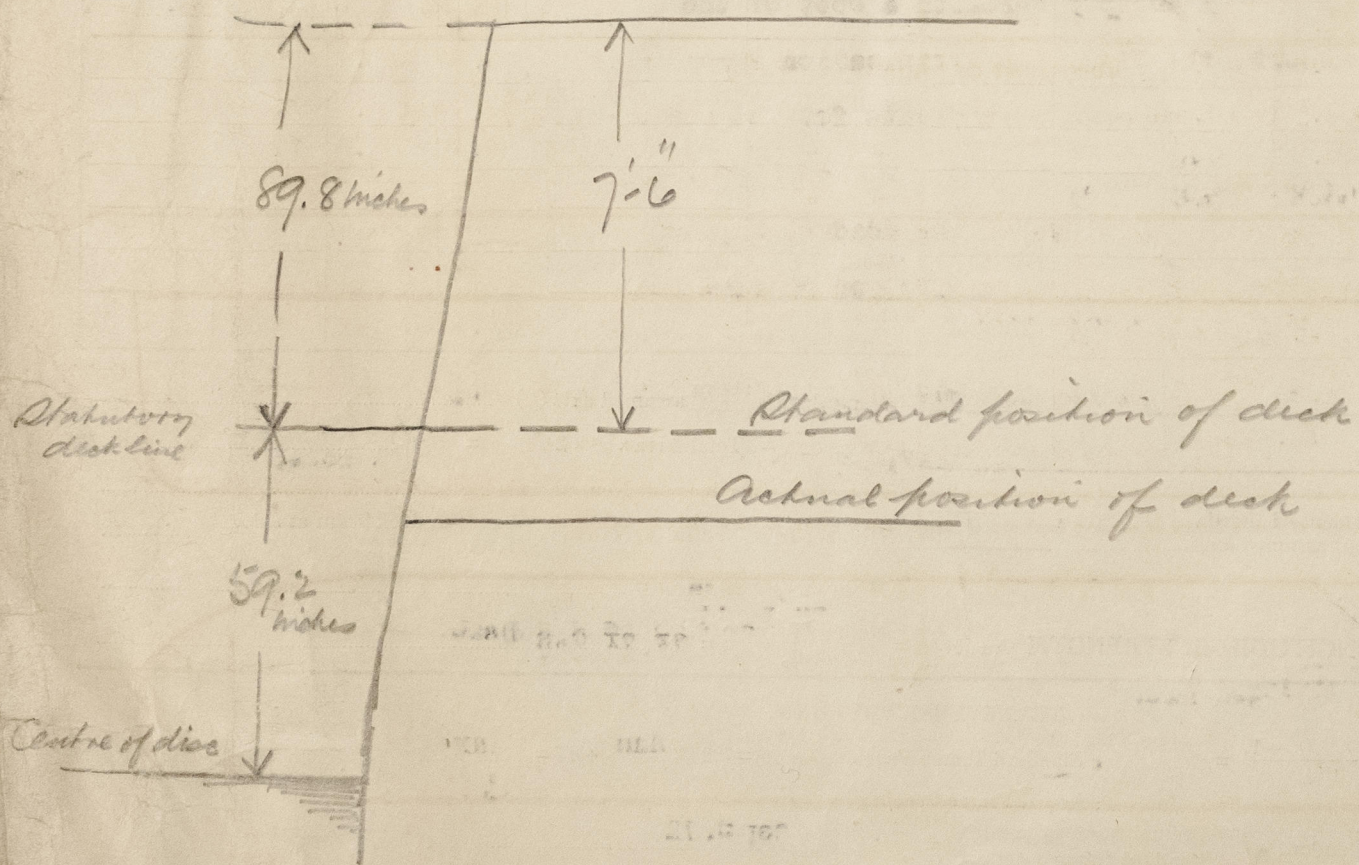 89.8 inches
7'-6"
Statutory
deckline
Standard position of deck
Actual position of deck
59.2
inches
Centre of disc